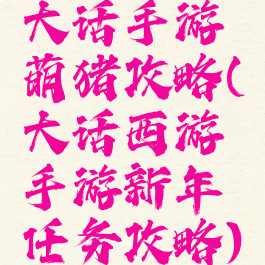 大话手游
萌猪攻略(
大话西游
手游新年
任务攻略)